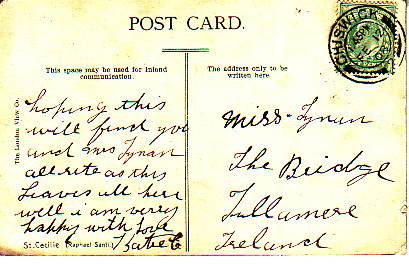 POST CARD.
This space may be used for inland
communication.
The address only to be
written here.
The London View Co.
hoping this
will find you
and Mrs Tynan
all rite as this
Leaves all here
well i am verry
happy with Love
Katie
St. Cecilie (Raphael Santi.)
CHISWICK
Miss Tynan
The Bridge
Tullamore
Ireland